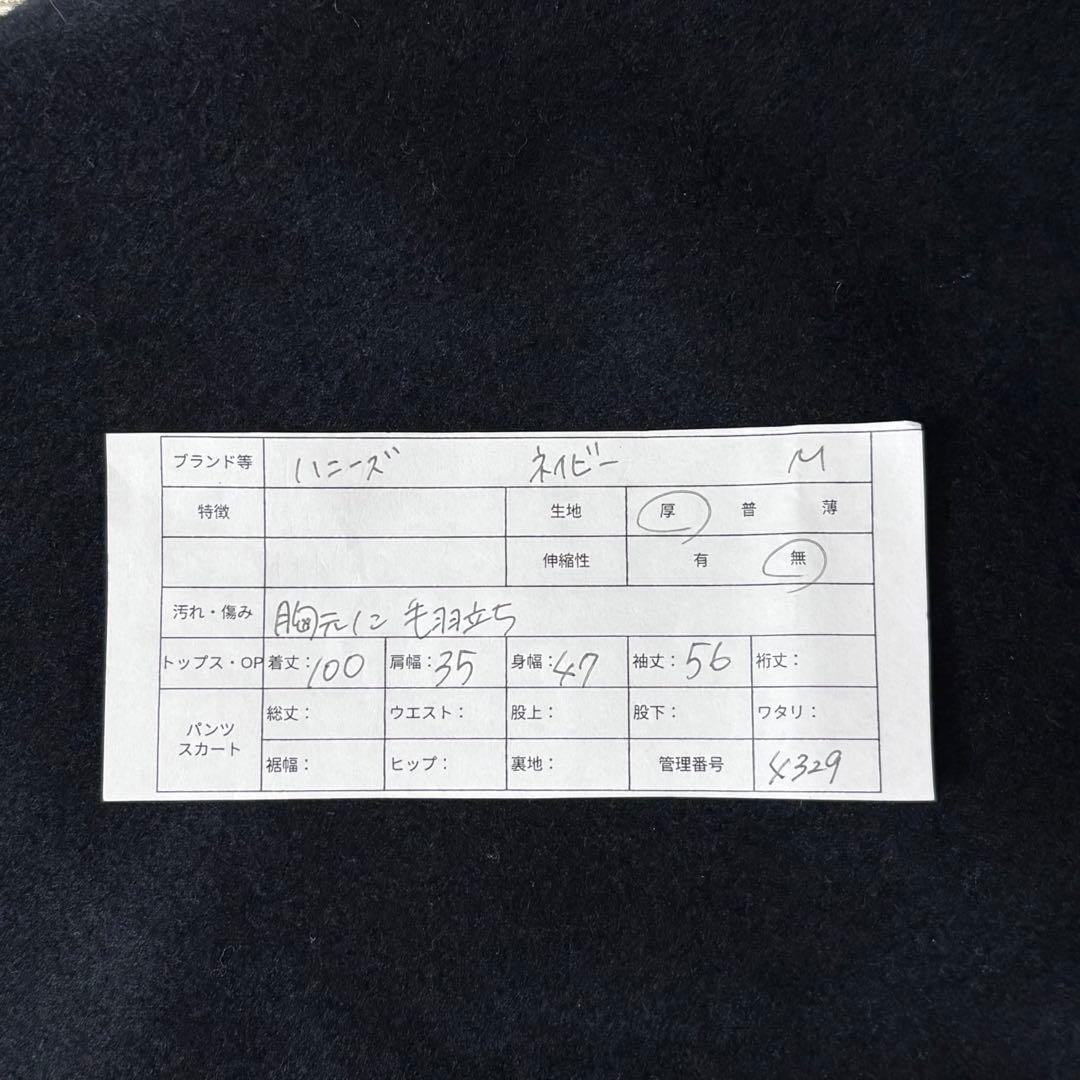 ブランド等 ハニーズ ネイビー M
特徴 生地 厚 普 薄
伸縮性 有 無
汚れ・傷み 胸元に毛羽立ち
トップス・OP 着丈：100 肩幅：35 身幅：47 袖丈：56 裄丈：
パンツ
スカート
総丈： ウエスト： 股上： 股下： ワタリ：
裾幅： ヒップ： 裏地： 管理番号 4329